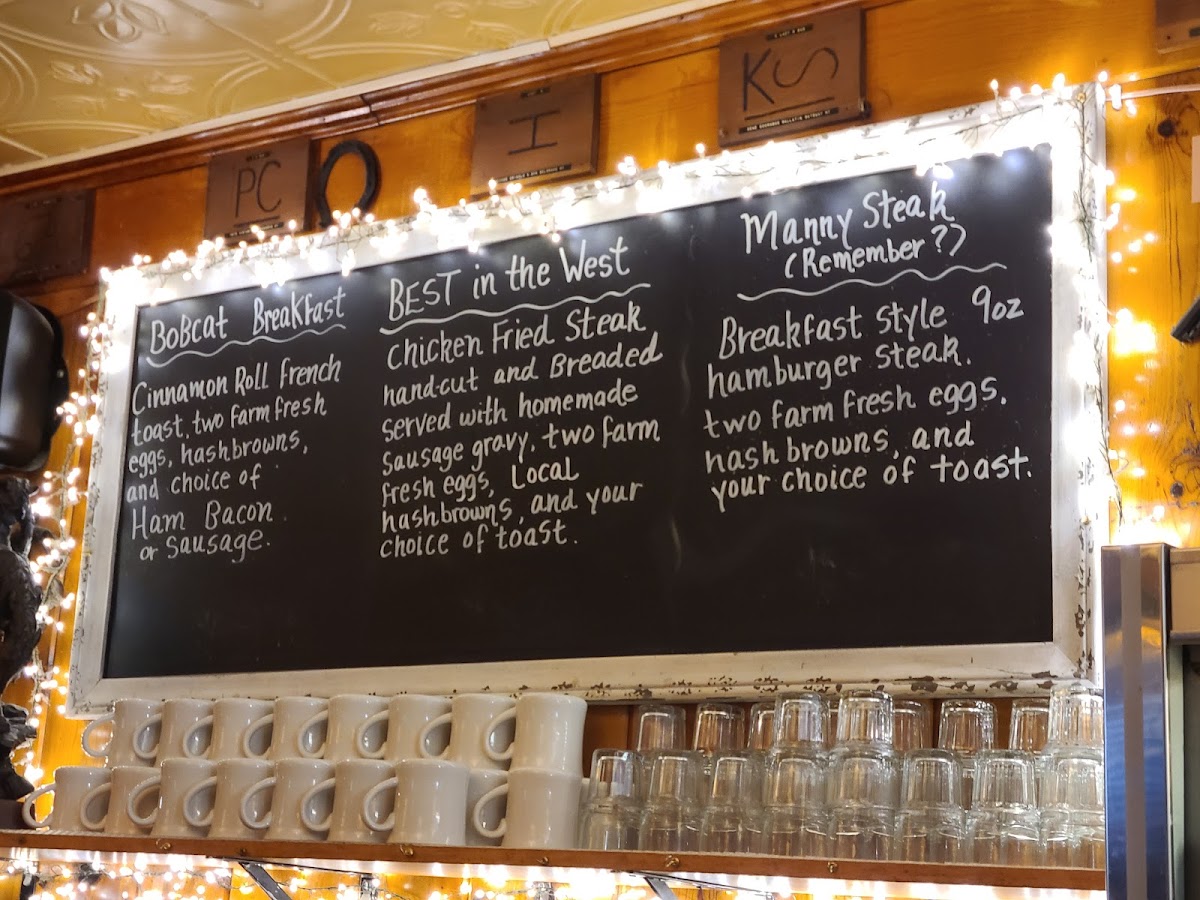 PC
I
KS
BoBcat Breakfast
Cinnamon Roll French
toast, two farm fresh
eggs, hashbrowns,
and choice of
Ham Bacon
or Sausage.
BEST in the West
Chicken Fried Steak
hand-cut and Breaded
served with homemade
Sausage gravy, two farm
fresh eggs, Local
hashbrowns, and your
choice of toast.
Manny Steak
(Remember?)
Breakfast style 9oz
hamburger steak.
two farm fresh eggs,
hash browns, and
your choice of toast.